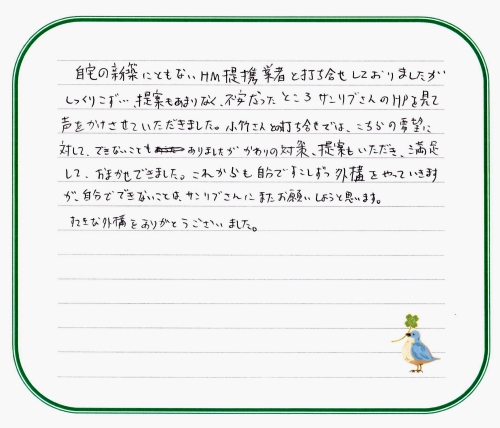 自宅の新築にともないHM提携業者と打ち合せしておりましたが
しっくりこず…、提案もあまりなく、不安だったところサンリブさんのHPを見て
声をかけさせていただきました。小竹さんとの打ち合せでは、こちらの要望に
対して、できないことも ありましたがかわりの対策、提案もいただき、満足
して、おまかせできました。これからも自分ですこしずつ外構をやっていきます
が、自分でできないことは、サンリブさんにまたお願いしようと思います。
すてきな外構をありがとうございました。